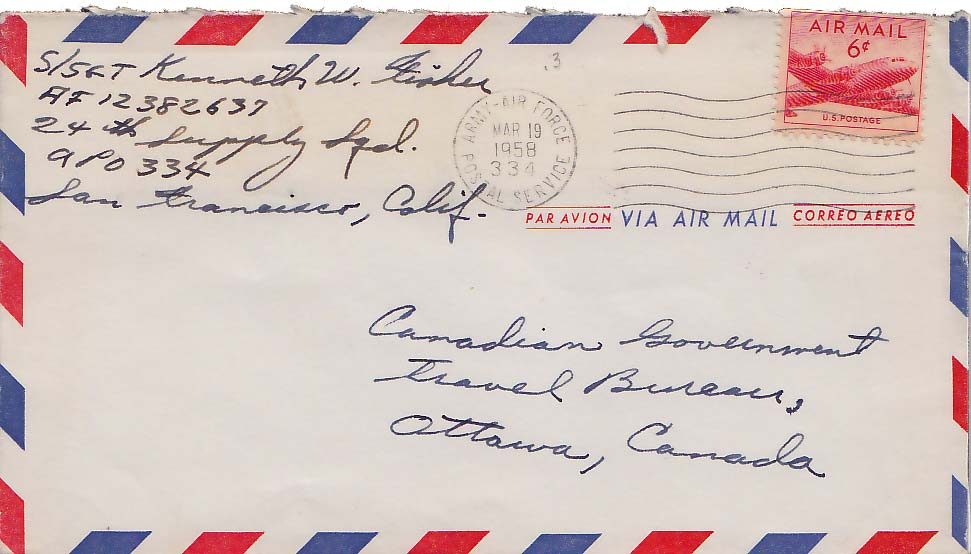 S/SGT Kenneth W. Fisher
AF 12382637
24th Supply Sqd.
APO 334
San Francisco, Calif.
.3
ARMY-AIR FORCE
MAR 19
1958
334
POSTAL SERVICE
AIR MAIL
6¢
U.S. POSTAGE
PAR AVION VIA AIR MAIL CORREO AEREO
Canadian Government
Travel Bureau,
Ottawa, Canada